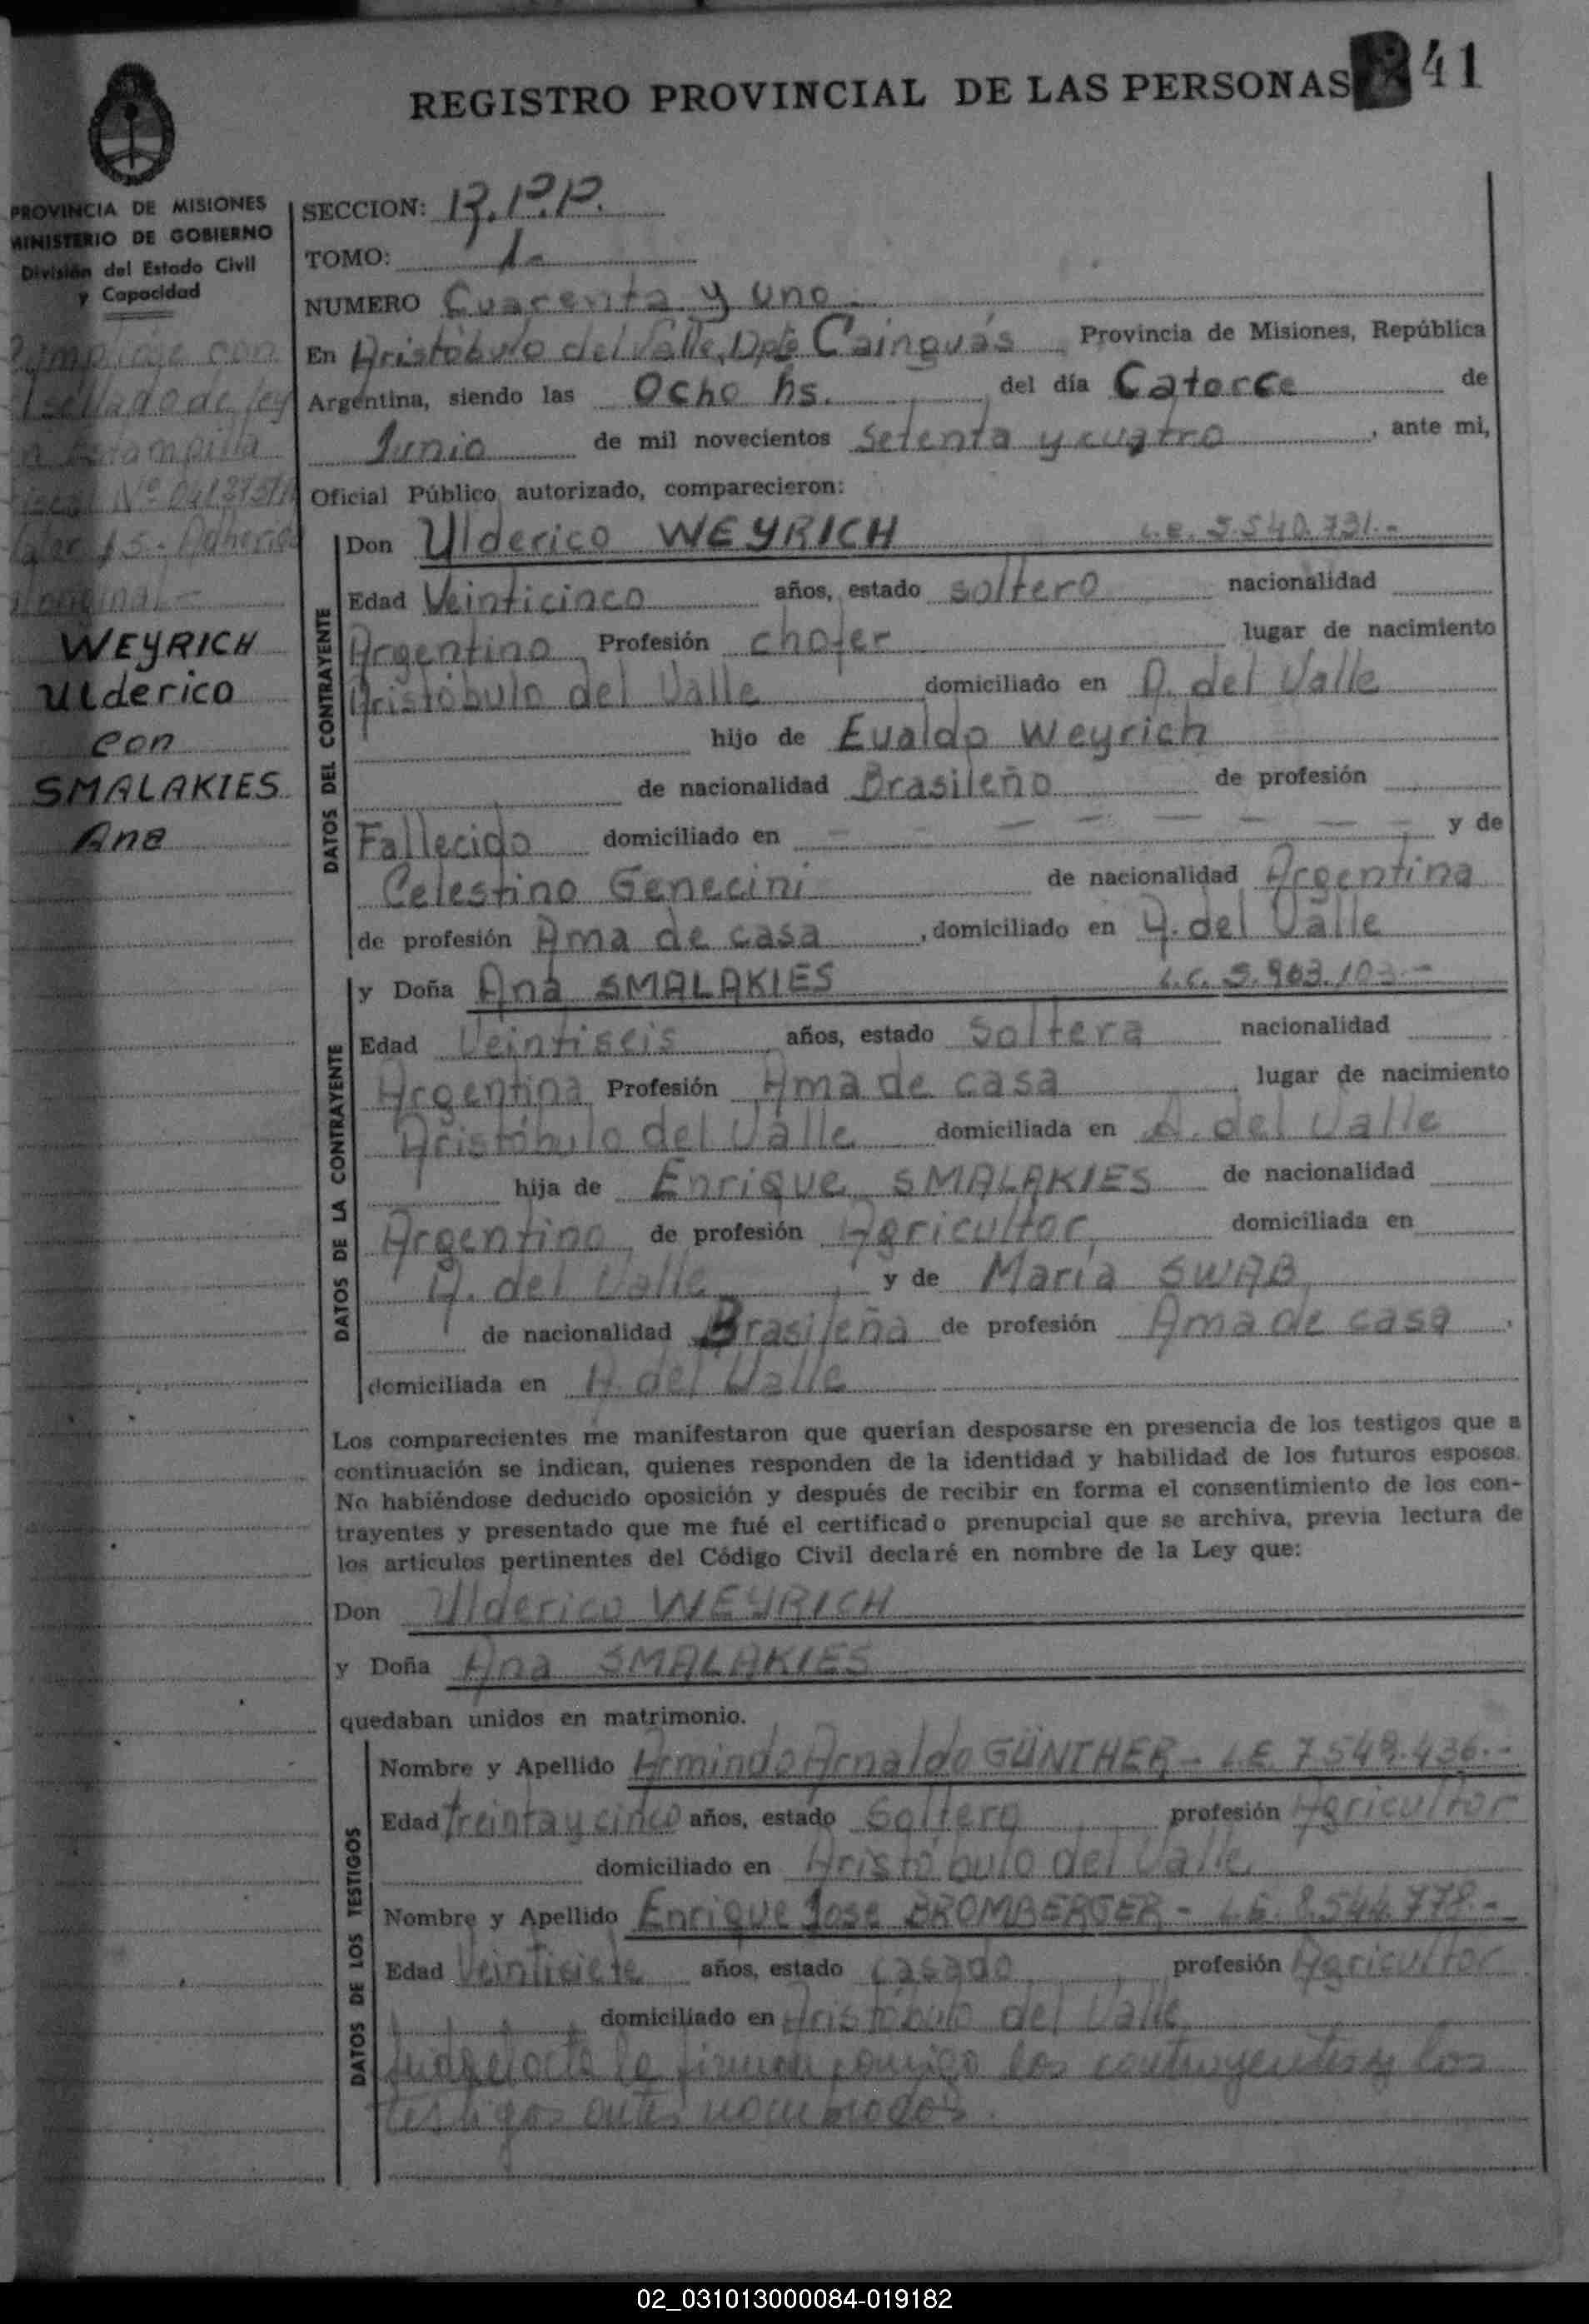 REGISTRO PROVINCIAL DE LAS PERSONAS 41
PROVINCIA DE MISIONES
MINISTERIO DE GOBIERNO
División del Estado Civil
y Capacidad
con
sellado de ley
estampilla
Nº
WEYRICH
Ulderico
con
SMALAKIES
Ana
SECCION:
TOMO: 1-
NUMERO Cuarenta y uno
En Aristóbulo del Valle, Dpto Cainguás Provincia de Misiones, República
Argentina, siendo las Ocho hs. del día Catorce de
Junio de mil novecientos setenta y cuatro, ante mi,
Oficial Público autorizado, comparecieron:
DATOS DEL CONTRAYENTE
Don Ulderico WEYRICH L.E. 5.540.731.-
Edad Veinticinco años, estado soltero nacionalidad
Argentino Profesión chofer lugar de nacimiento
Aristóbulo del Valle domiciliado en A. del Valle
hijo de Evaldo Weyrich
de nacionalidad Brasileño de profesión
Fallecido domiciliado en - - - - - - - - y de
Celestino Genecini de nacionalidad Argentina
de profesión Ama de casa, domiciliado en A. del Valle
DATOS DE LA CONTRAYENTE
y Doña Ana SMALAKIES L.C. 5.963.103.-
Edad Veintiseis años, estado Soltera nacionalidad
Argentina Profesión Ama de casa lugar de nacimiento
Aristóbulo del Valle domiciliada en A. del Valle
hija de Enrique SMALAKIES de nacionalidad
Argentino de profesión Agricultor, domiciliada en
A. del Valle y de María SWAB
de nacionalidad Brasileña de profesión Ama de casa,
domiciliada en A. del Valle
Los comparecientes me manifestaron que querían desposarse en presencia de los testigos que a
continuación se indican, quienes responden de la identidad y habilidad de los futuros esposos.
No habiéndose deducido oposición y después de recibir en forma el consentimiento de los con-
trayentes y presentado que me fué el certificado prenupcial que se archiva, previa lectura de
los artículos pertinentes del Código Civil declaré en nombre de la Ley que:
Don Ulderico WEYRICH
y Doña Ana SMALAKIES
quedaban unidos en matrimonio.
DATOS DE LOS TESTIGOS
Nombre y Apellido Armindo Arnaldo GÜNTHER - L.E. 7.549.436.-
Edad treinta y cinco años, estado Soltero profesión Agricultor
domiciliado en Aristóbulo del Valle
Nombre y Apellido Enrique Jose BROMBERGER - L.E. 8.544.778.-
Edad Veintisiete años, estado casado profesión Agricultor
domiciliado en Aristóbulo del Valle
acta la firman conmigo los contrayentes y los
testigos antes nombrados.
02_031013000084-019182